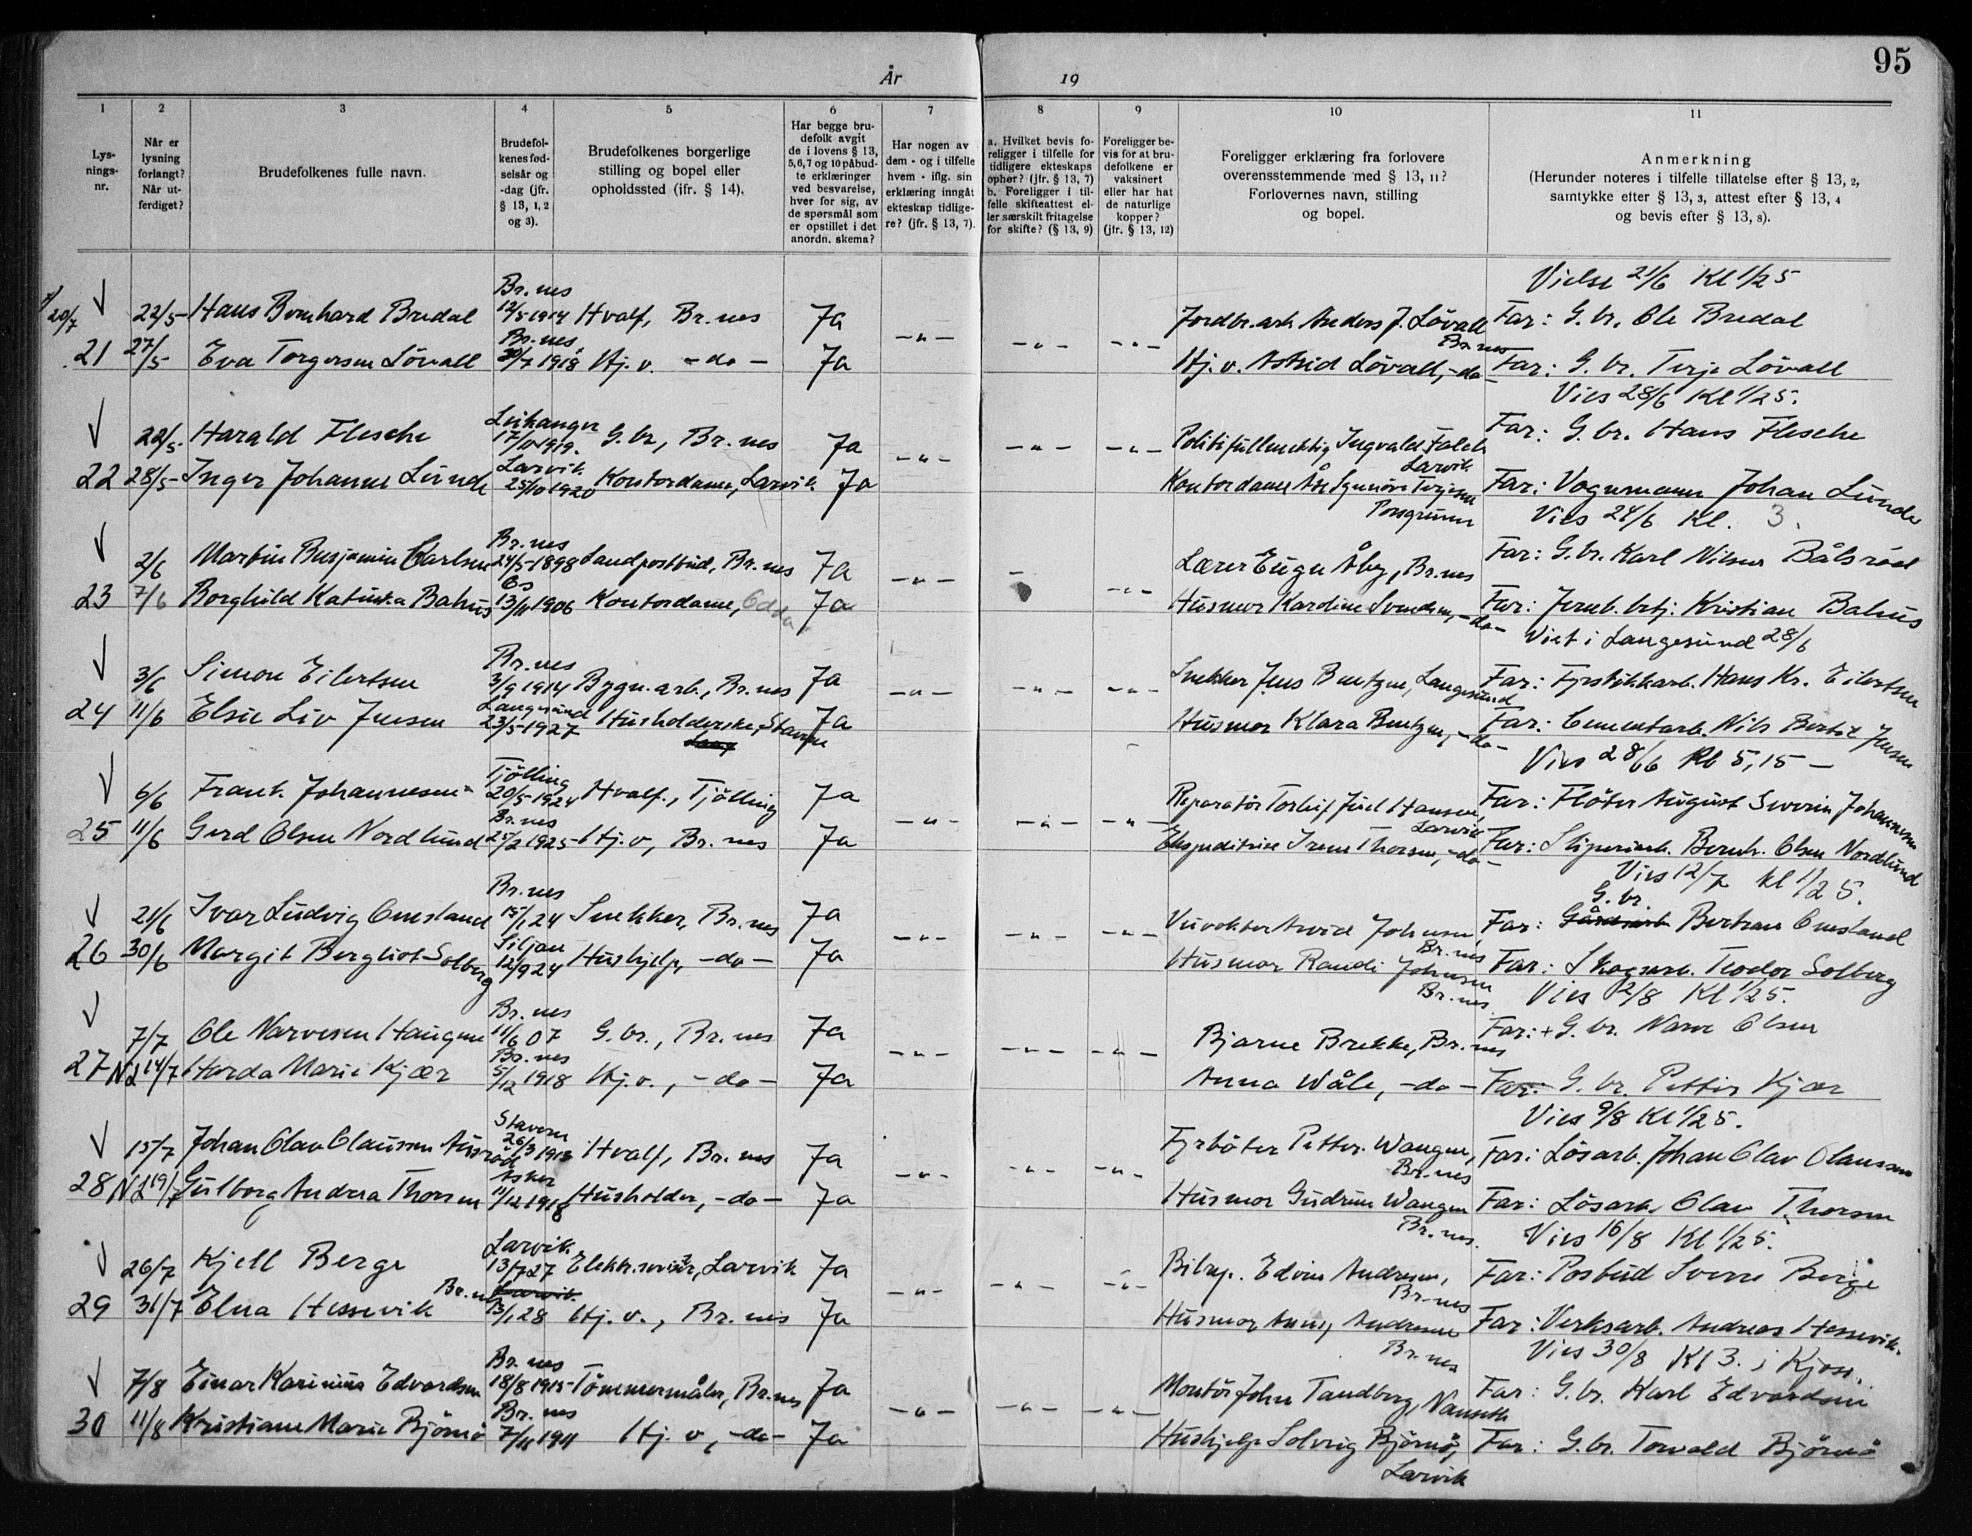 95
År 19
1 2 3 4 5 6 7 8 9 10 11
Lys-
nings-
nr.
Når er
lysning
forlangt?
Når ut-
ferdiget?
Brudefolkenes fulle navn.
Brudefol-
kenes fød-
selsår og
-dag (jfr.
§ 13, 1, 2
og 3).
Brudefolkenes borgerlige
stilling og bopel eller
opholdssted (ifr. § 14).
Har begge bru-
defolk avgit
de i lovens § 13,
5,6,7 og 10 påbud-
te erklæringer
ved besvarelse,
hver for sig, av
de spørsmål som
er opstillet i det
anordn. skema?
Har nogen av
dem - og i tilfelle
hvem - iflg. sin
erklæring inngåt
ekteskap tidlige-
re? (jfr. § 13, 7).
a. Hvilket bevis fo-
religger i tilfelle for
tidligere ekteskaps
ophør? (jfr. § 13, 7)
b. Foreligger i til-
felle skifteattest el-
ler særskilt fritagelse
for skifte? (§ 13, 9)
Foreligger be-
vis for at bru-
defolkene er
vaksinert
eller har hat
de naturlige
kopper?
(jfr. § 13, 12)
Foreligger erklæring fra forlovere
overensstemmende med § 13, 11?
Forlovernes navn, stilling
og bopel.
Anmerkning
(Herunder noteres i tilfelle tillatelse efter § 13, 2,
samtykke efter § 13, 3, attest efter § 13, 4
og bevis efter § 13, 8).
Br.nes Vielse 21/6 Kl 1/2 5
20/7 22/5 Hans Bernhard Bredal 12/5 1914 Hvalf, Br.nes Ja Jordbr.arb Anders J. Lövall Br.nes Far: G.br. Ole Bredal
Br.nes
21 27/5 Eva Torgersen Lövall 30/7 1918 Hj.v. -do- Ja -"- -"- -"- Hj.v. Astrid Lövall, -do- Far: G.br. Terje Lövall
Vies 28/6 Kl 1/2 5.
Leikanger
22/5 Harald Flesche 1919. G.br, Br.nes Ja -"- -"- -"- Politifullmektig Ingvald Falch Larvik Far: G.br. Hans Flesche
Larvik
22 28/5 Inger Johanne Lunde 25/10 1920 Kontordame, Larvik Ja Kontordame Porsgrunn Far: Vognmann Johan Lunde
Vies 24/6 Kl. 3.
Br.nes
2/6 Martin Benjamin Carlsen 24/5 1898 Landpostbud, Br.nes Ja -"- Lærer Eugen Åby, Br.nes Far: G.br. Karl Nilsen Bålsrød
23 7/6 Borghild Katinka Bakus 13/11 1906 Kontordame, Ja -"- Husmor Kardine Svendsen, -do- Far: Jernb. betj. Kristian Bakus
Viet i Langesund 28/6
Br.nes
3/6 Simon Eilertsen 3/9 1914 Bygn.arb., Br.nes Ja -"- -"- -"- Snekker Jens Bentzen, Langesund Far: Fyrstikkarb. Hans Kr. Eilertsen
Langesund
24 11/6 Elsie Liv Jensen 23/5 1927 Husholderske, Stavern Ja Husmor Klara Bentzen, -do- Far: Cementarb. Nils Bertil Jensen
Vies 28/6 Kl 5,15 -
Tjölling
6/6 Frank Johannesen 20/5 1924 Hvalf., Tjölling Ja -"- -"- -"- Reparatör Torleif Juel Hansen, Larvik Far: Fløter August Severin Johannesen
Br.nes
25 11/6 Gerd Olsen Nordlund 25/2 1925 Hj.v, Br.nes Ja Ekspeditrise Irene Thorsen, -do- Far: Sliperiarb. Bernh. Olsen Nordlund
Vies 12/7 Kl 1/2 5.
Br.nes G.br.
21/6 Ivar Ludvig Omsland 15/1 24 Snekker, Br.nes Ja -"- -"- -"- Johnsen Br.nes Far: Gårdsarb Bertran Omsland
Siljan
26 30/6 Margit Bergliot Solberg 12/9 24 Hushjelp, -do- Ja Husmor Randi Johnsen Br.nes Far: Skogsarb. Teodor Solberg
Vies 2/8 Kl 1/2 5.
Br.nes
7/7 Ole Narvesen Haugen 11/6 07 G.br., Br.nes Ja -"- -"- -"- Bjarne Brekke, Br.nes Far: + G.br. Narve Olsen
Br.nes
27 14/7 Harda Marie Kjær 5/12 1918 Hj.v., -do- Ja Anna Wåle, -do- Far: G.br. Petter Kjær
Vies 9/8 Kl 1/2 5.
Stavern
15/7 Johan Olav Olaussen Ausröd 26/3 Hvalf, Br.nes Ja -"- -"- -"- Fyrböter Petter Wangen, Br.nes Far: Lösarb. Johan Olav Olaussen
Asker
28 19/7 Gulborg Andrea Thorsen 11/12 1918 Husholder, -do- Ja Husmor Gudrun Wangen Br.nes. Far: Lösarb. Olav Thorsen
Vies 16/8 Kl 1/2 5.
Larvik
26/7 Kjell Berge 13/7 27 Larvik Ja -"- -"- -"- Edvin Andresen, Br.nes Far: Postbud Sverre Berge
Br.nes Larvik
29 31/7 Elna Hessevik 13/1 28 Hj.v., Br.nes Ja Husmor Anny Andresen Br.nes Far: Verksarb. Andreas Hessevik.
Vies 30/8 Kl 3. i Kjose.
Br.nes
7/8 Einar Karinius Edvardsen 18/8 1915 Tömmermåler, Br.nes Ja -"- -"- -"- Montör John Tandberg, Nanseth Far: G.br. Karl Edvardsen
Br.nes
30 11/8 Kristiane Marie Björnö 7/11 1911 Hj.v, -do- Ja Hushjelp Solveig Björnö, Larvik Far: G.br. Torvald Björnö